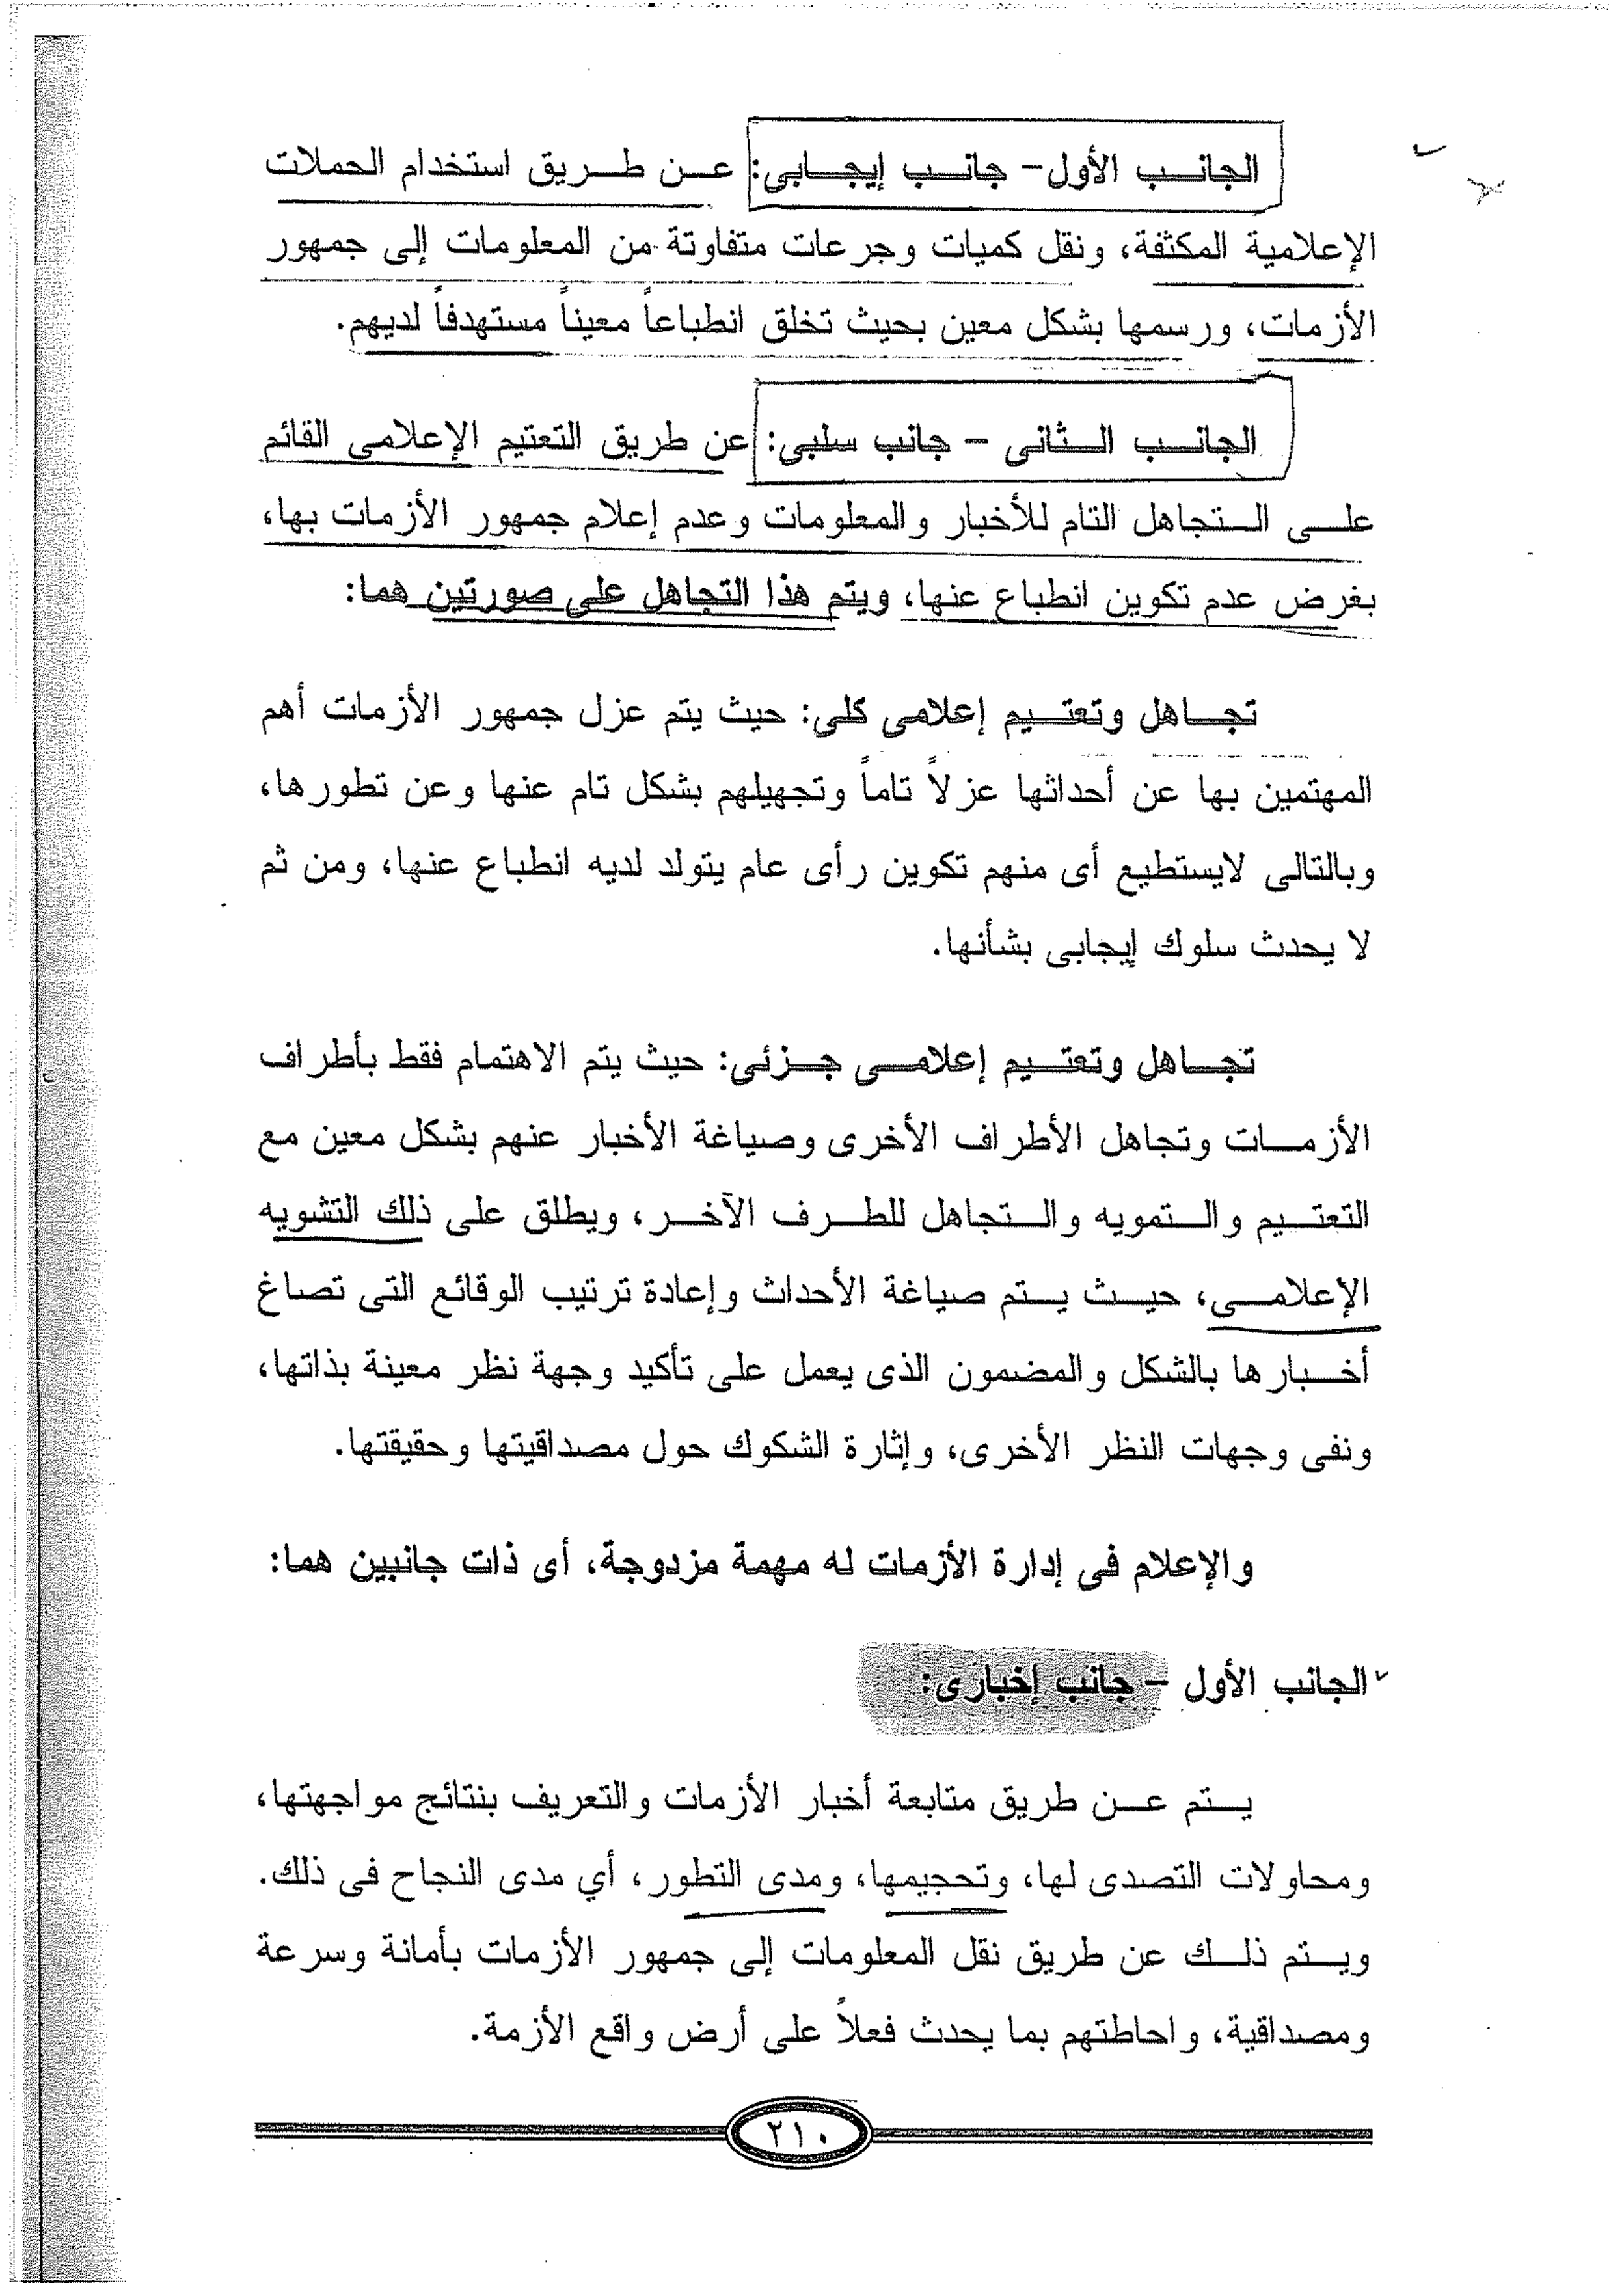 الجانب الأول- جانب إيجابى: عن طريق استخدام الحملات
الإعلامية المكثفة، ونقل كميات وجرعات متفاوتة من المعلومات إلى جمهور
الأزمات، ورسمها بشكل معين بحيث تخلق انطباعاً معيناً مستهدفاً لديهم.
الجانب الثانى - جانب سلبى: عن طريق التعتيم الإعلامى القائم
على التجاهل التام للأخبار والمعلومات وعدم إعلام جمهور الأزمات بها،
بغرض عدم تكوين انطباع عنها، ويتم هذا التجاهل على صورتين هما:
تجاهل وتعتيم إعلامى كلى: حيث يتم عزل جمهور الأزمات أهم
المهتمين بها عن أحداثها عزلاً تاماً وتجهيلهم بشكل تام عنها وعن تطورها،
وبالتالى لايستطيع أى منهم تكوين رأى عام يتولد لديه انطباع عنها، ومن ثم
لا يحدث سلوك إيجابى بشأنها.
تجاهل وتعتيم إعلامى جزئى: حيث يتم الاهتمام فقط بأطراف
الأزمات وتجاهل الأطراف الأخرى وصياغة الأخبار عنهم بشكل معين مع
التعتيم والتمويه والتجاهل للطرف الآخر، ويطلق على ذلك التشويه
الإعلامى، حيث يتم صياغة الأحداث وإعادة ترتيب الوقائع التى تصاغ
أخبارها بالشكل والمضمون الذى يعمل على تأكيد وجهة نظر معينة بذاتها،
ونفى وجهات النظر الأخرى، وإثارة الشكوك حول مصداقيتها وحقيقتها.
والإعلام فى إدارة الأزمات له مهمة مزدوجة، أى ذات جانبين هما:
الجانب الأول - جانب إخبارى:
يتم عن طريق متابعة أخبار الأزمات والتعريف بنتائج مواجهتها،
ومحاولات التصدى لها، وتحجيمها، ومدى التطور، أي مدى النجاح فى ذلك.
ويتم ذلك عن طريق نقل المعلومات إلى جمهور الأزمات بأمانة وسرعة
ومصداقية، واحاطتهم بما يحدث فعلاً على أرض واقع الأزمة.
٢١٠